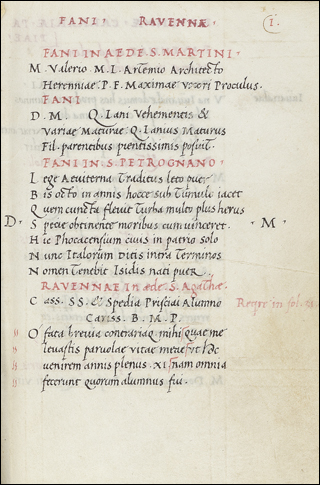 FANI · RAVENNÆ
1.
FANI IN AEDE · S · MARTINI ·
M · Valerio · M · L · Artemio Architecto
Herenniae · P · F · Maximae Vxori Proculus ·
FANI
D · M · Q · Lani Vehementis &
Variae Maturae Q · Lanius Maturus
Fil · parentibus pientissimis posuit ·
FANI IN S PETROGNANO ·
Lege Acuiterna Traditus leto puer
Bis octo in annis hocce sub Tumulo iacet
Quem cuncta fleuit Turba multo plus herus
D · Specie obtinente moribus cum uinceret · · M ·
Hic Phocaensium ciuis in patrio solo
Nunc Italorum ditis intra Terminos
Nomen Tenebit Isidis nati puer
RAVENNAE IN aede · S · Agathæ
C ass · SS · & Spedia Prisciai Alumno
Cariss · B · M · P ·
O fata breuia contrariaq mihi quae me
leuastis paruolae vitae
uenirem annis plenus · XI nam omnia
fecerunt quorum alumnus fui ·